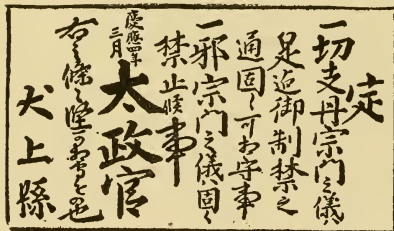 定
一切支丹宗門之儀
是迄御制禁之
通固ク可相守事
一邪宗門之儀固ク
禁止候事
慶應四年
三月
太政官
右之條々堅可相守者也
犬上縣